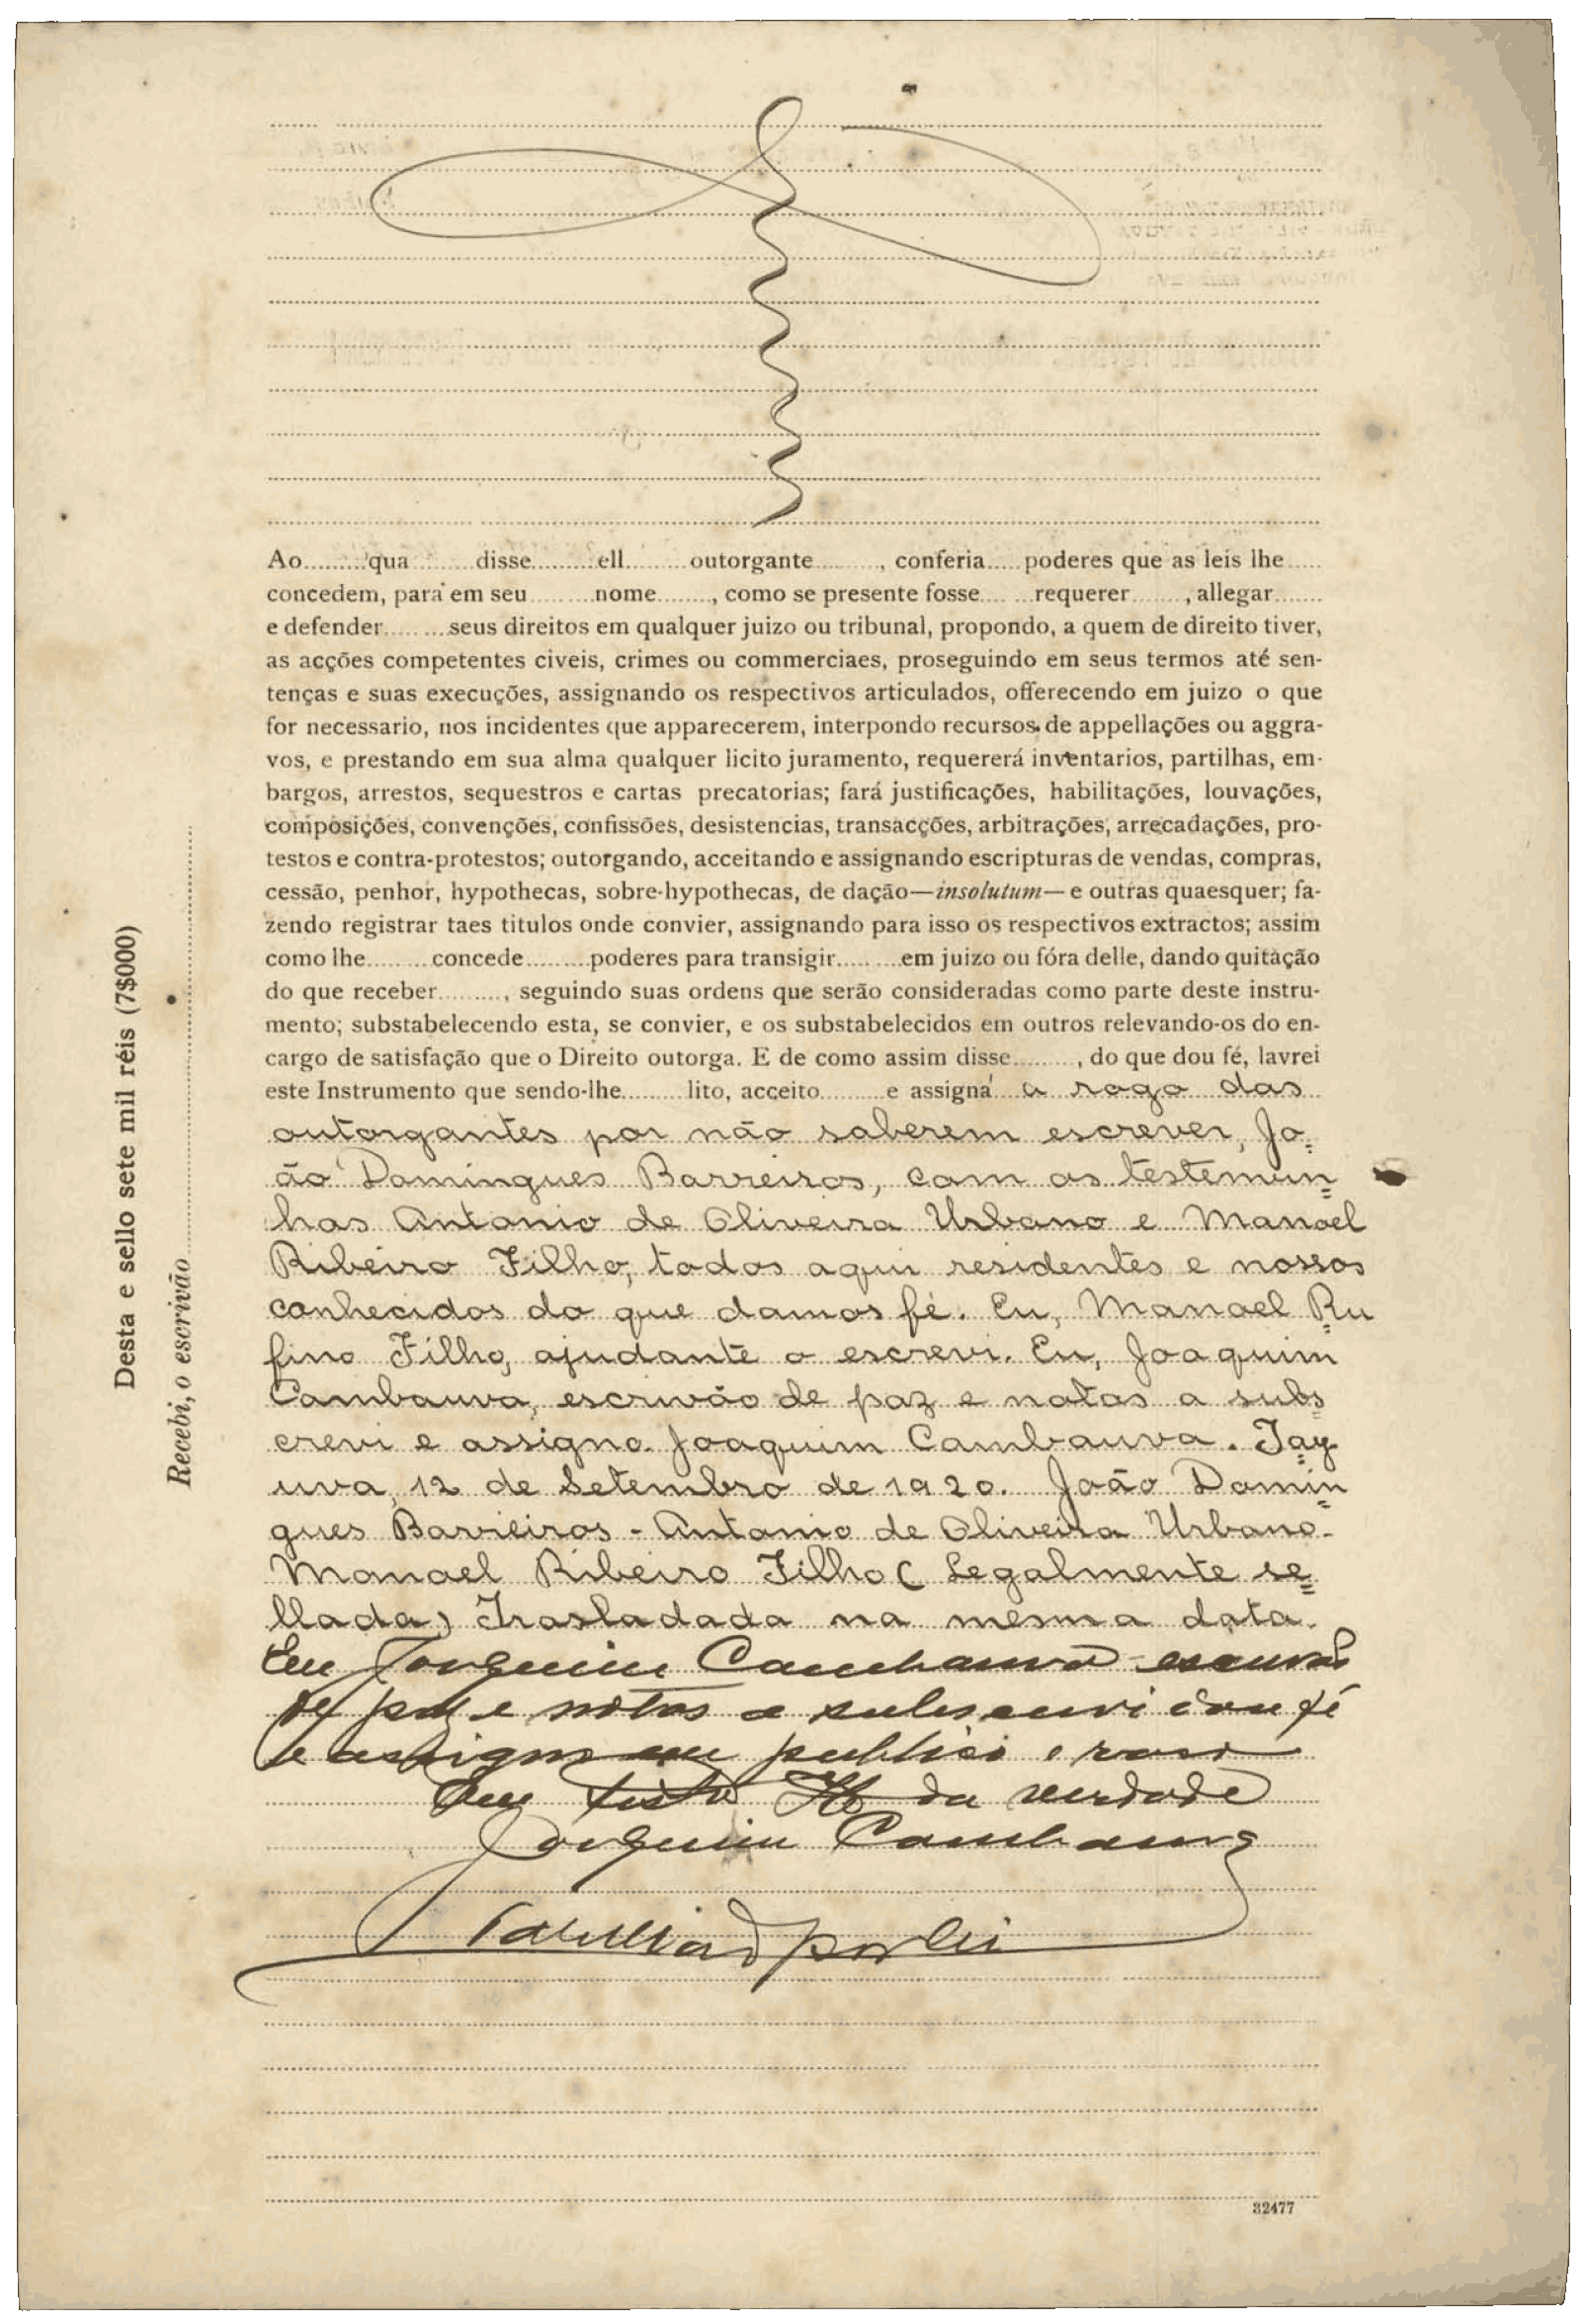 Ao..........qua..........disse.........ell.........outorgante........., conferia.....poderes que as leis lhe.....
concedem, para em seu.........nome........, como se presente fosse.......requerer......., allegar.......
e defender.........seus direitos em qualquer juizo ou tribunal, propondo, a quem de direito tiver,
as acções competentes civeis, crimes ou commerciaes, proseguindo em seus termos até sen-
tenças e suas execuções, assignando os respectivos articulados, offerecendo em juizo o que
for necessario, nos incidentes que apparecerem, interpondo recursos de appellações ou aggra-
vos, e prestando em sua alma qualquer licito juramento, requererá inventarios, partilhas, em-
bargos, arrestos, sequestros e cartas precatorias; fará justificações, habilitações, louvações,
composições, convenções, confissões, desistencias, transacções, arbitrações, arrecadações, pro-
testos e contra-protestos; outorgando, acceitando e assignando escripturas de vendas, compras,
cessão, penhor, hypothecas, sobre-hypothecas, de dação—insolutum—e outras quaesquer; fa-
zendo registrar taes titulos onde convier, assignando para isso os respectivos extractos; assim
como lhe.........concede.........poderes para transigir.........em juizo ou fóra delle, dando quitação
do que receber........., seguindo suas ordens que serão consideradas como parte deste instru-
mento; substabelecendo esta, se convier, e os substabelecidos em outros relevando-os do en-
cargo de satisfação que o Direito outorga. E de como assim disse........., do que dou fé, lavrei
este Instrumento que sendo-lhe.........lito, acceito.........e assigna a rogo das
outorgantes por não saberem escrever, Jo=
ão Domingues Barreiros, com as testemun=
has Antonio de Oliveira Urbano e Manoel
Ribeiro Filho, todos aqui residentes e nossos
conhecidos do que damos fé. Eu, Manoel Ru=
fino Filho, ajudante o escrevi. Eu, Joaquim
Cambauva, escrivão de paz e notas a subs=
crevi e assigno. Joaquim Cambauva. Jay=
uva, 12 de Setembro de 1920. João Domin=
gues Barreiros - Antonio de Oliveira Urbano.
Manoel Ribeiro Filho ( Legalmente se=
llada) Trasladada na mesma data.
Eu Joaquim Cambauva escrivão
de paz e notas a subscrevi dou fé
e assigno em publico e raso
Em testo da verdade
Joaquim Cambauva
Tabellião por lei
32477
Desta e sello sete mil réis (7$000)
Recebi, o escrivão